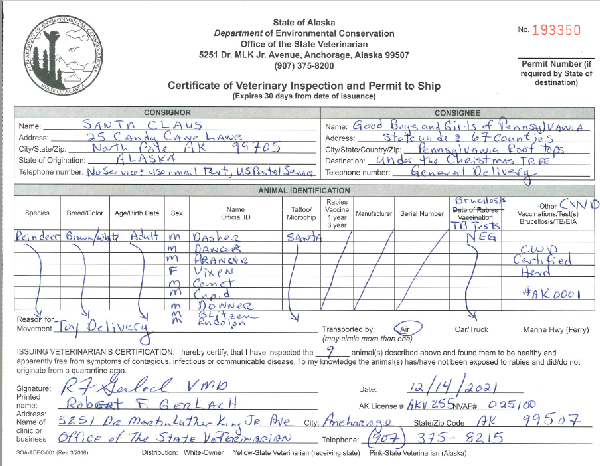 State of Alaska
Department of Environmental Conservation
Office of the State Veterinarian
5251 Dr. MLK Jr. Avenue, Anchorage, Alaska 99507
(907) 375-8200
No. 193350
Permit Number (if
required by State of
destination)
Certificate of Veterinary Inspection and Permit to Ship
(Expires 30 days from date of issuance)
CONSIGNOR
Name: SANTA CLAUS
Address: 25 Candy Cane Lane
City/State/Zip: North Pole AK 99705
State of Origination: ALASKA
Telephone number: No Service: use email Port, US Postal Service
CONSIGNEE
Name: Good Boys and Girls of Pennsylvania
Address: Statewide 67 Counties
City/State/Country/Zip: Pennsylvania Roof tops
Destination: under the Christmas TREE
Telephone number: General Delivery
ANIMAL IDENTIFICATION
Species Breed/Color Age/Birth Date Sex Name Official ID Tattoo/Microchip Rabies Vaccine 1 year 3 year Manufacturer Serial Number Brucellosis Date of Rabies Vaccination TB Tests Other CWD Vaccinations/Test(s) Brucellosis/TB/EIA
Reindeer Brown/white Adult M Dasher Santa NEG
M DANCER CWD
M PRANCER Certified
F Vixen Herd
M Comet
M Cupid #AK0001
M DONNER
M Blitzen
M Rudolph
Reason for
Movement Toy Delivery
Transported by: Air Car/Truck Marine Hwy (Ferry)
(may circle more than one)
ISSUING VETERINARIAN'S CERTIFICATION. I hereby certify, that I have inspected the 9 animal(s) described above and found them to be healthy and
apparently free from symptoms of contagious, infectious or communicable disease. To my knowledge the animal(s) has/have not been exposed to rabies and did/do not
originate from a quarantine area.
Signature: RF Gerlach VMD
Date: 12/14/2021
Printed
name: Robert F. GERLACH
AK License # AKV255 NVAP# 025100
Address:
Name of
clinic or
business
5251 Dr Martin Luther King Jr Ave City: Anchorage State/Zip Code AK 99507
Office of The State Veterinarian Telephone: (907) 375-8215
Distribution: White-Owner Yellow-State Veterinarian (receiving state) Pink-State Veterinarian (Alaska)